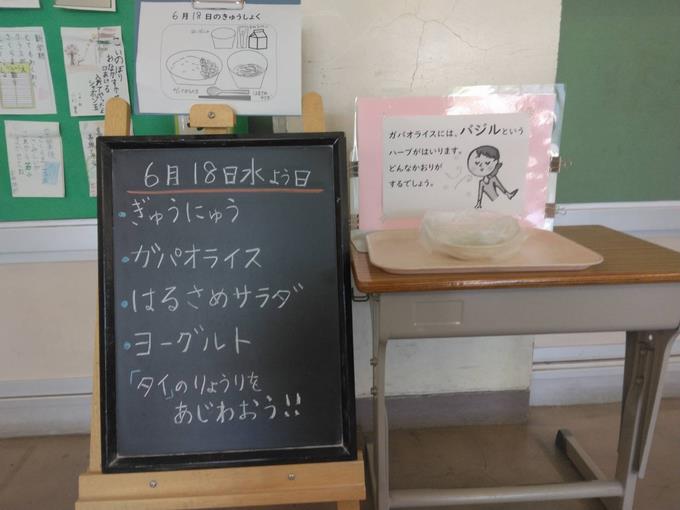 6月18日のきゅうしょく
6月18日水よう日
ぎゅうにゅう
ガパオライス
はるさめサラダ
ヨーグルト
「タイ」のりょうりを
あじわおう!!
ガパオライスには、バジルという
ハーブがはいります。
どんなかおりが
するでしょう。